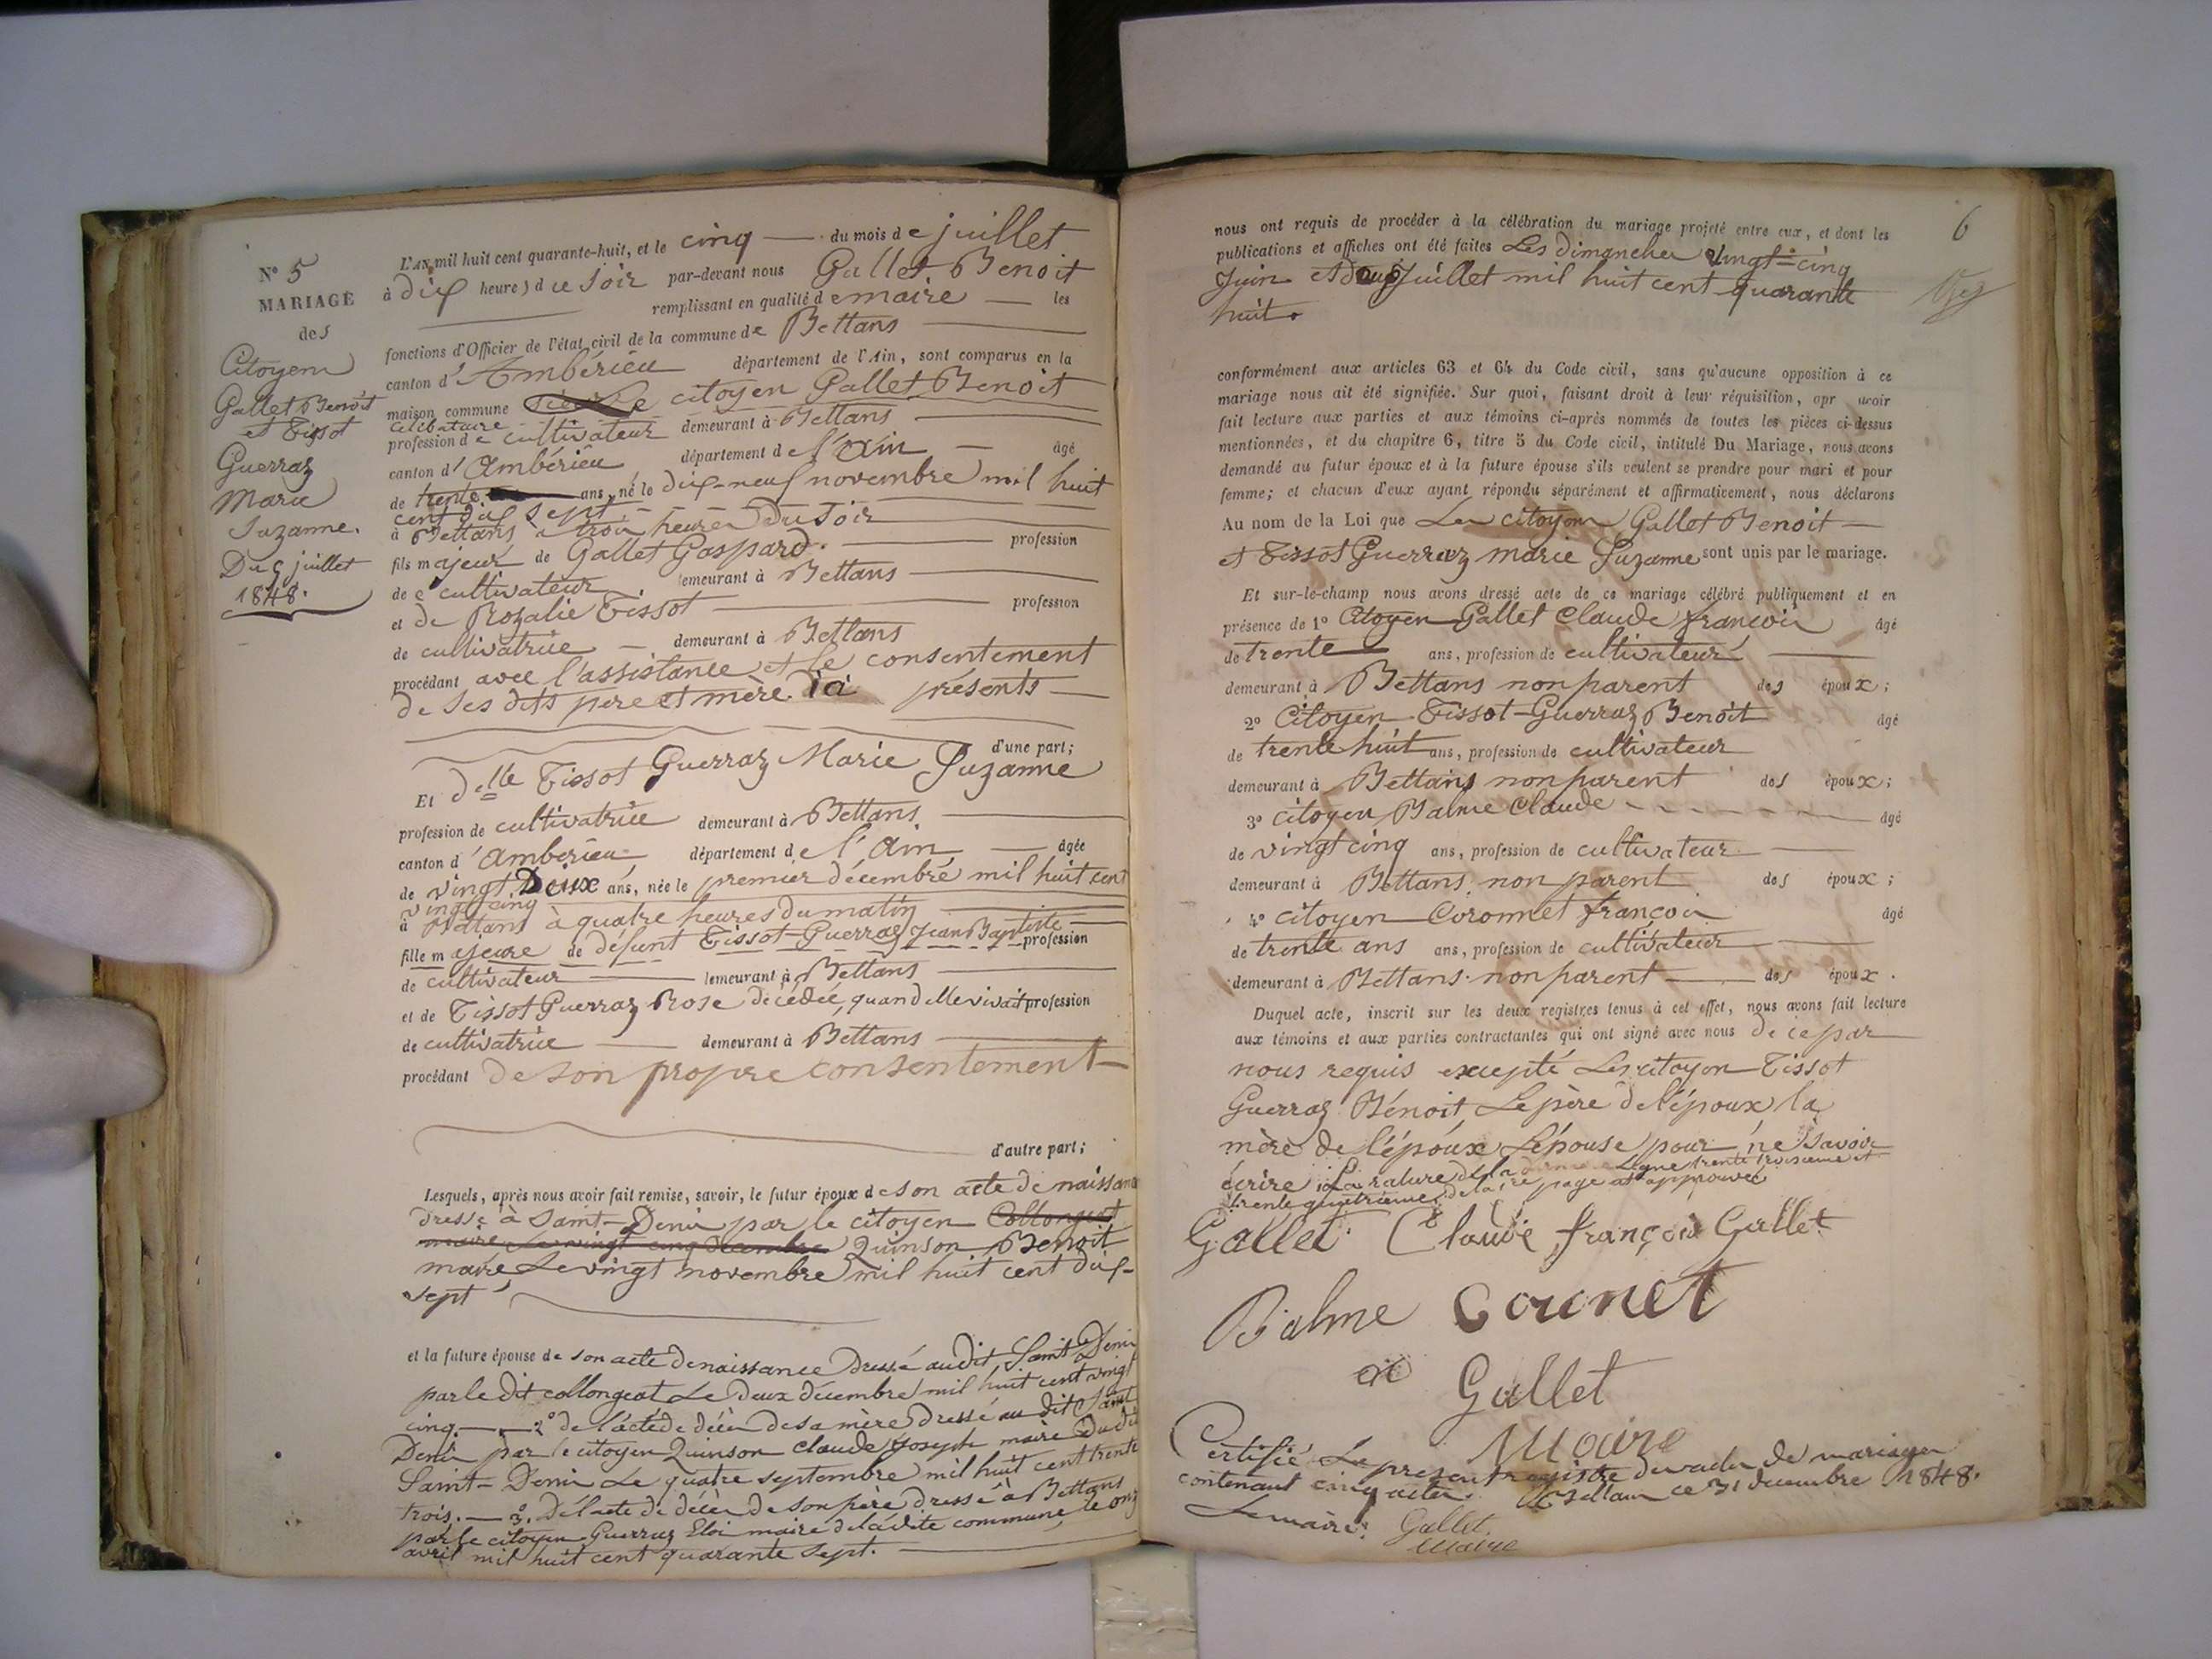 N° 5
MARIAGE
des
Citoyens
Gallet Benoit
et Tissot
Guerraz
Marie
Suzanne.
Du 5 juillet
1848.
L'AN mil huit cent quarante-huit, et le cinq du mois de juillet
à dix heures du soir par-devant nous Gallet Benoit
remplissant en qualité de maire les
fonctions d'Officier de l'état civil de la commune de Bettans
canton d'Ambérieu département de l'Ain, sont comparus en la
maison commune Le citoyen Gallet Benoit
célibataire
profession de cultivateur demeurant à Bettans
canton d'Ambérieu département de l'Ain âgé
de trente ans, né le dix-neuf novembre mil huit
cent dix sept
à Bettans à trois heures du soir
fils majeur de Gallet Gaspard. profession
de cultivateur demeurant à Bettans
et de Rozalie Tissot profession
de cultivatrice demeurant à Bettans
procédant avec l'assistance et le consentement
de ses dits père et mère ici présents
d'une part;
Et delle Tissot Guerraz Marie Suzanne
profession de cultivatrice demeurant à Bettans
canton d'Ambérieu département de l'Ain âgée
de vingt Deux ans, née le premier décembre mil huit cent
vingt cinq
à Bettans à quatre heures du matin
fille majeure de défunt Tissot-Guerraz Jean Baptiste profession
de cultivateur demeurant à Bettans
et de Tissot Guerraz Rose décédée, quand elle vivait profession
de cultivatrice demeurant à Bettans
procédant de son propre consentement
d'autre part;
Lesquels, après nous avoir fait remise, savoir, le futur époux de son acte de naissance
dressé à Saint-Denis par le citoyen Collongeat
maire Le vingt cinq décembre Quinson Benoit
maire Le vingt novembre mil huit cent dix-
sept
et la future épouse de son acte de naissance dressé audit Saint Denis
par le dit collongeat Le deux décembre mil huit cent vingt
cinq. 2° de l'acte de décès de sa mère dressé au dit Saint
Denis par le citoyen Quinson Claude Joseph maire dudit
Saint-Denis Le quatre septembre mil huit cent trente
trois. 3. De l'acte de décès de son père dressé à Bettans
par le citoyen Guerraz Eloi maire de la dite commune, le onze
avril mil huit cent quarante sept.
6
nous ont requis de procéder à la célébration du mariage projeté entre eux, et dont les
publications et affiches ont été faites Les dimanches vingt-cinq
Juin et deux Juillet mil huit cent quarante
huit.
conformément aux articles 63 et 64 du Code civil, sans qu'aucune opposition à ce
mariage nous ait été signifiée. Sur quoi, faisant droit à leur réquisition, apr avoir
fait lecture aux parties et aux témoins ci-après nommés de toutes les pièces ci-dessus
mentionnées, et du chapitre 6, titre 5 du Code civil, intitulé Du Mariage, nous avons
demandé au futur époux et à la future épouse s'ils veulent se prendre pour mari et pour
femme; et chacun d'eux ayant répondu séparément et affirmativement, nous déclarons
Au nom de la Loi que Les citoyens Gallet Benoit
et Tissot Guerraz marie Suzanne sont unis par le mariage.
Et sur-le-champ nous avons dressé acte de ce mariage célébré publiquement et en
présence de 1° Citoyen Gallet Claude françois âgé
de trente ans, profession de cultivateur
demeurant à Bettans non parent des époux;
2° Citoyen Tissot-Guerraz Benoit âgé
de trente huit ans, profession de cultivateur
demeurant à Bettans non parent des époux;
3° citoyen Balme Claude âgé
de vingt cinq ans, profession de cultivateur
demeurant à Bettans, non parent des époux;
4° citoyen Coronnet françois âgé
de trente ans ans, profession de cultivateur
demeurant à Bettans non parent des époux.
Duquel acte, inscrit sur les deux registres tenus à cet effet, nous avons fait lecture
aux témoins et aux parties contractantes qui ont signé avec nous de ce par
nous requis excepté Les citoyen Tissot
Guerraz Bénoit, Le père de l'époux la
mère de l'époux L'épouse pour ne savoir
écrire La rature de la ligne trente troisième et
trente quatrième de la 1re page est approuvée
Gallet Claude françois Gallet
Balme Coronet
Gallet
Maire
Certifié Le present registre des actes de mariages
contenant cinq actes. Bettans ce 31 decembre 1848.
Le maire: Gallet
Maire